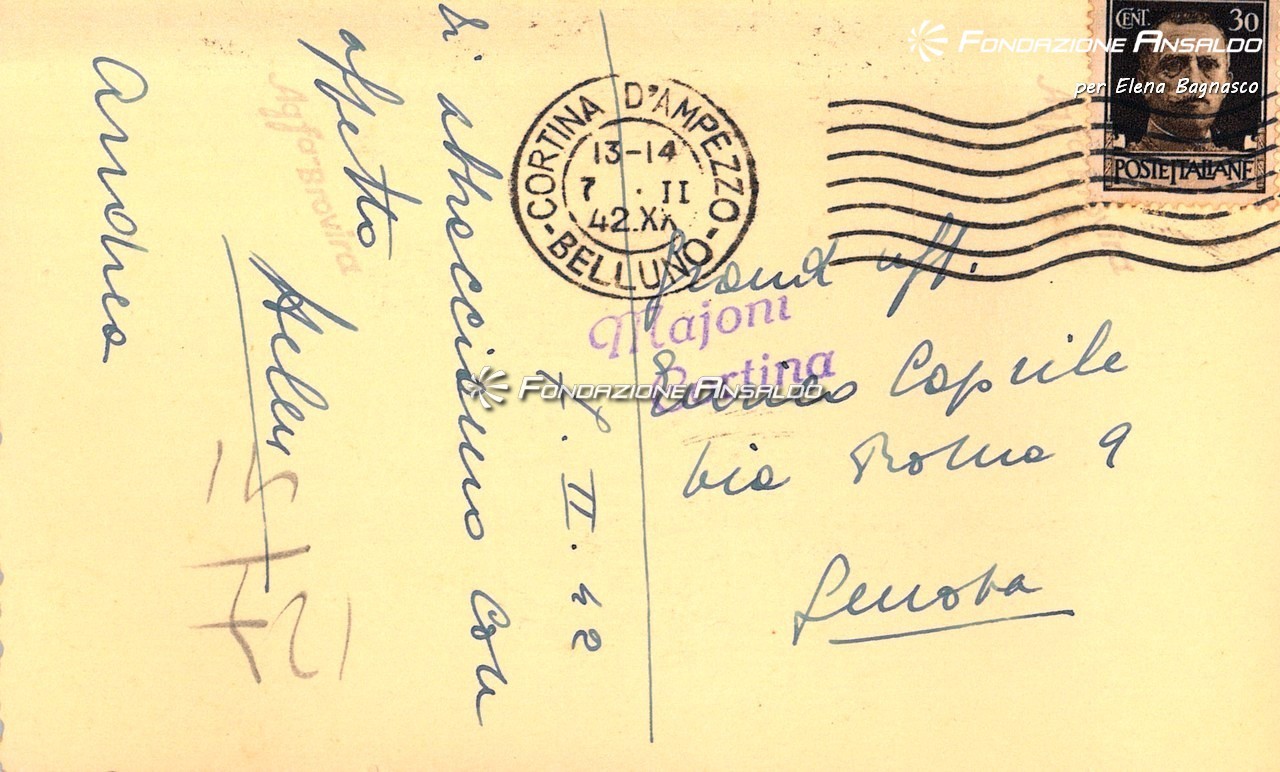 V. II. 42
Vi abbracciamo con
affetto
Helen
Andrea
Agfa-Brovira
CORTINA D'AMPEZZO
-BELLUNO-
13-14
7 . II
42.XX
CENT. 30
POSTE ITALIANE
FONDAZIONE ANSALDO
per Elena Bagnasco
Majoni
Cortina
FONDAZIONE ANSALDO
Grand uff.
Caprile
Via Roma 9
Genova